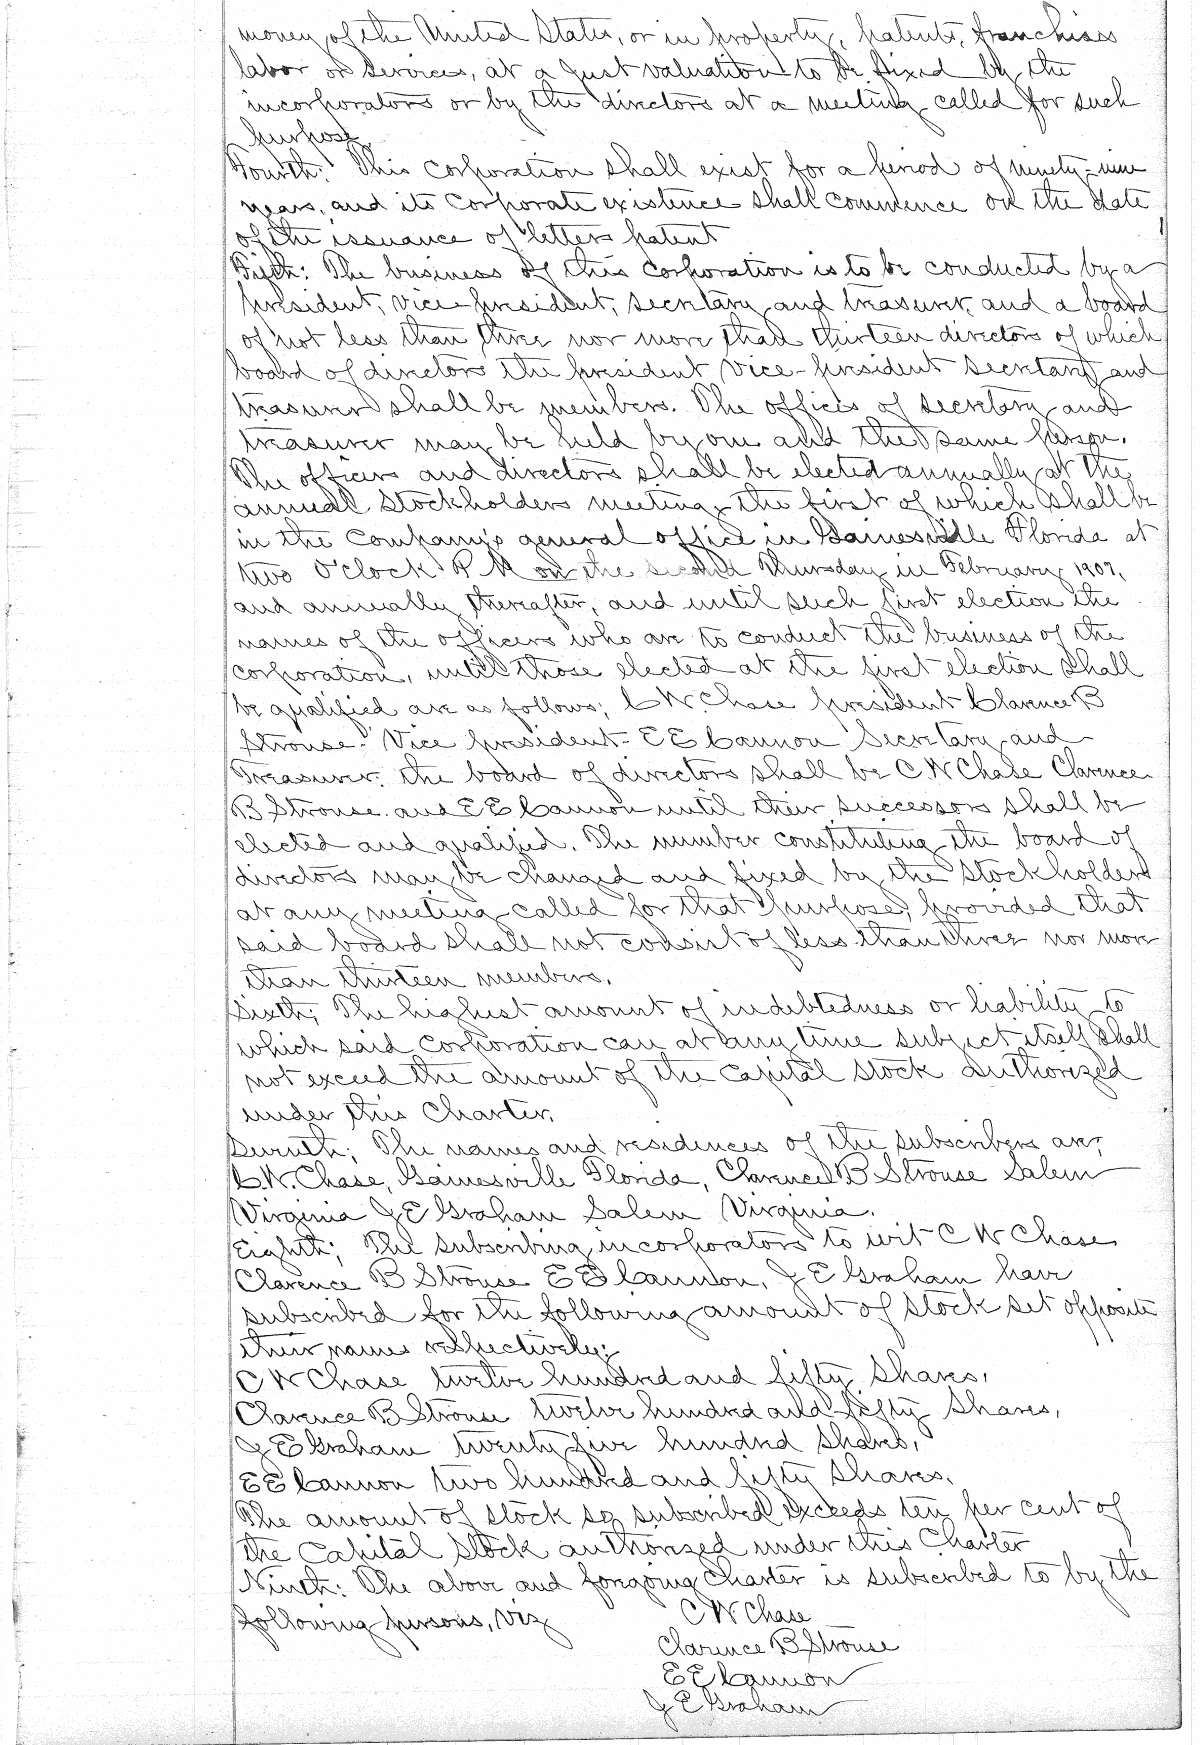 money of the United States, or in property, patents, franchises
labor or services, at a just valuation to be fixed by the
incorporators or by the directors at a meeting called for such
purpose.
Fourth: This Corporation shall exist for a period of ninety-nine
years, and its Corporate existence shall commence on the date
of the issuance of letters patent
Fifth: The business of this Corporation is to be conducted by a
president, vice-president, secretary and treasurer, and a board
of not less than three nor more than thirteen directors of which
board of directors the president vice-president secretary and
treasurer shall be members. The offices of secretary and
treasurer may be held by one and the same person.
The officers and directors shall be elected annually at the
annual Stockholders meeting, the first of which shall be
in the Company's general office in Gainesville Florida at
two O'clock P M on the second Thursday in February 1907,
and annually thereafter, and until such first election the
names of the officers who are to conduct the business of the
corporation, until those elected at the first election shall
be qualified are as follows; C W. Chase president Clarence B
Strouse. Vice president - E E Cannon Secretary and
Treasurer. the board of directors shall be C W Chase Clarence
B Strouse and E E Cannon until their successors shall be
elected and qualified. The number constituting the board of
directors may be changed and fixed by the Stockholders
at any meeting called for that purpose, provided that
said board shall not consist of less than three nor more
than thirteen members.
Sixth; The highest amount of indebtedness or liability to
which said Corporation can at any time subject itself shall
not exceed the amount of the Capital Stock authorized
under this Charter.
Seventh; The names and residences of the subscribers are;
C W. Chase, Gainesville Florida, Clarence B Strouse Salem
Virginia J E Graham Salem Virginia.
Eighth; The subscribing incorporators to wit C W Chase
Clarence B Strouse E E Cannon, J E Graham have
subscribed for the following amount of stock set opposite
their names respectively;
C W Chase twelve hundred and fifty shares,
Clarence B Strouse twelve hundred and fifty shares,
J E Graham twenty five hundred shares,
E E Cannon two hundred and fifty shares.
The amount of stock so subscribed exceeds ten per cent of
the Capital Stock authorized under this Charter
Ninth: The above and forgoing Charter is subscribed to by the
following persons, viz
C W Chase
Clarence B Strouse
E E Cannon
J E Graham